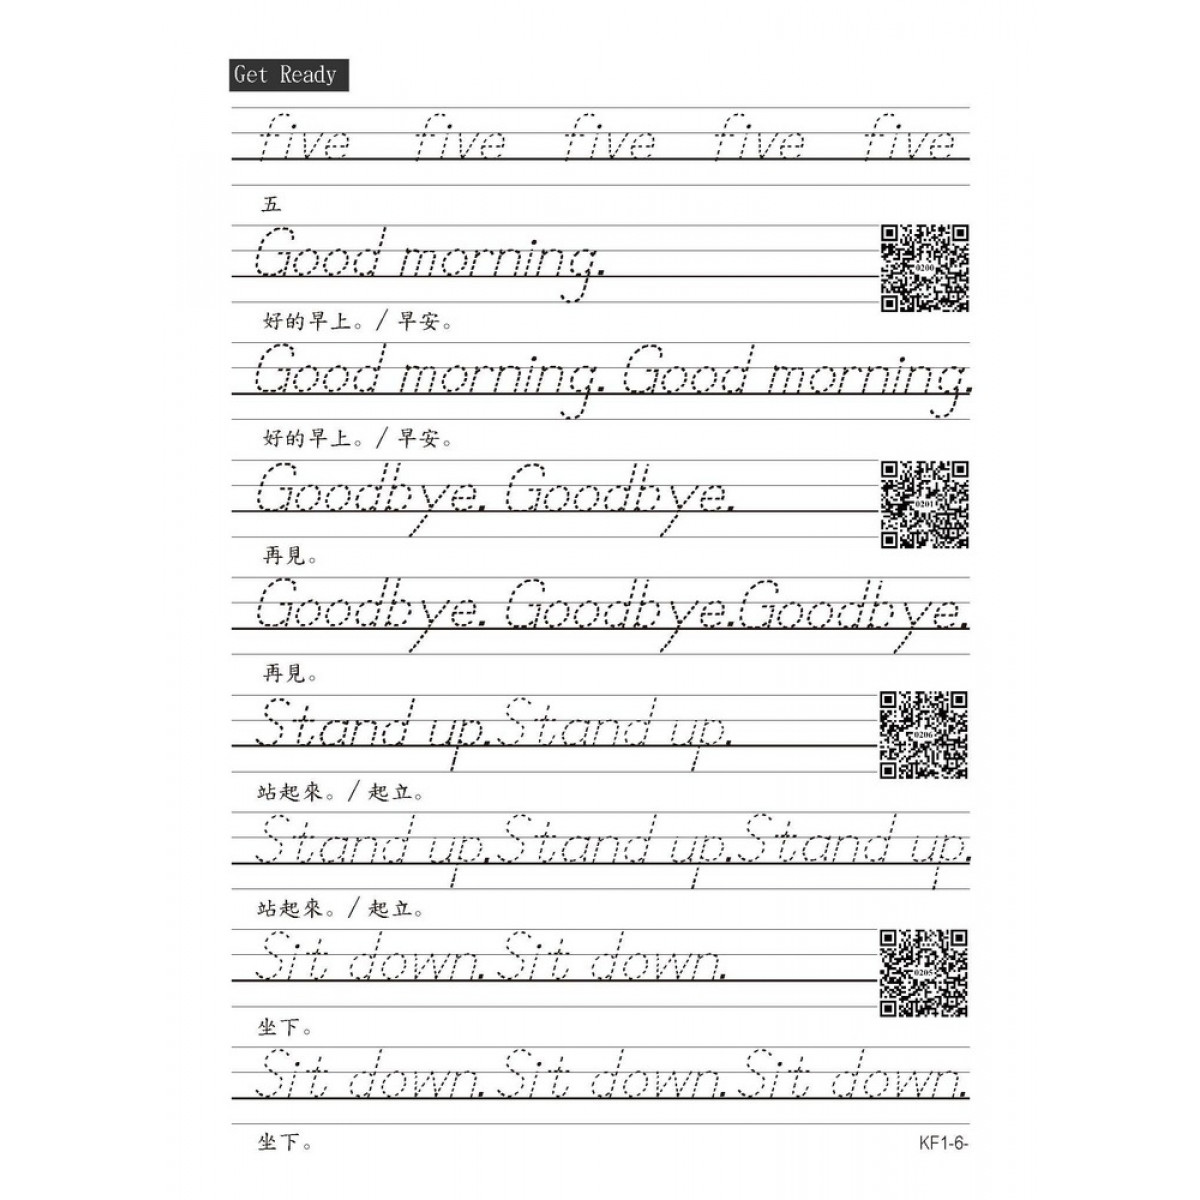 Get Ready
five five five five five
五
Good morning.
0200
好的早上。/ 早安。
Good morning. Good morning.
好的早上。/ 早安。
Goodbye. Goodbye.
0201
再見。
Goodbye. Goodbye. Goodbye.
再見。
Stand up. Stand up.
0206
站起來。/ 起立。
Stand up. Stand up. Stand up.
站起來。/ 起立。
Sit down. Sit down.
0205
坐下。
Sit down. Sit down. Sit down.
坐下。
KF1-6-